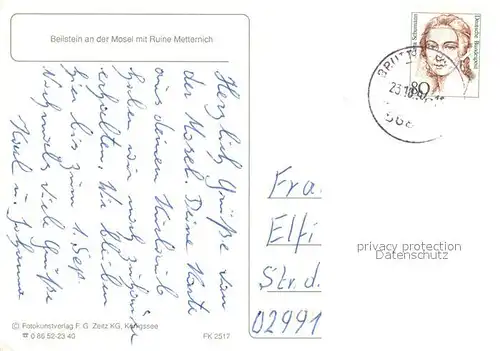 Beilstein an der Mosel mit Ruine Metternich
Herzlich Grüße von
der Mosel. Deine Karte
aus deinem Urlaub
haben wir noch zuhause
erhalten. Wir bleiben
hier bis zum 1. Sep.
Nochmals viele Grüße
Karl u. Johanna
© Fotokunstverlag F. G. Zeitz KG, Königssee
☎ 0 86 52-23 40
FK 2517
Deutsche Bundespost
Clara Schumann
80
Fra
Elfi
Str. d.
02991
privacy protection
Datenschutz